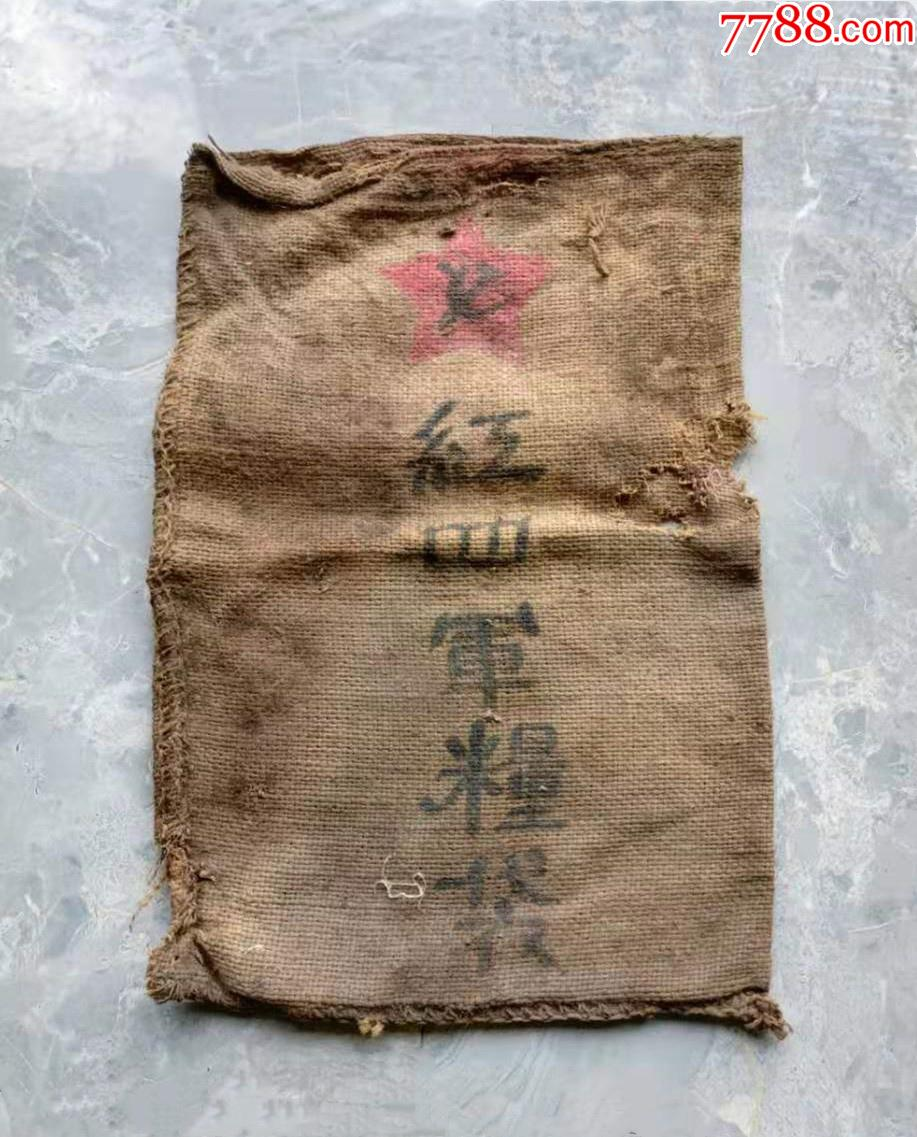 7788.com
紅四軍糧袋